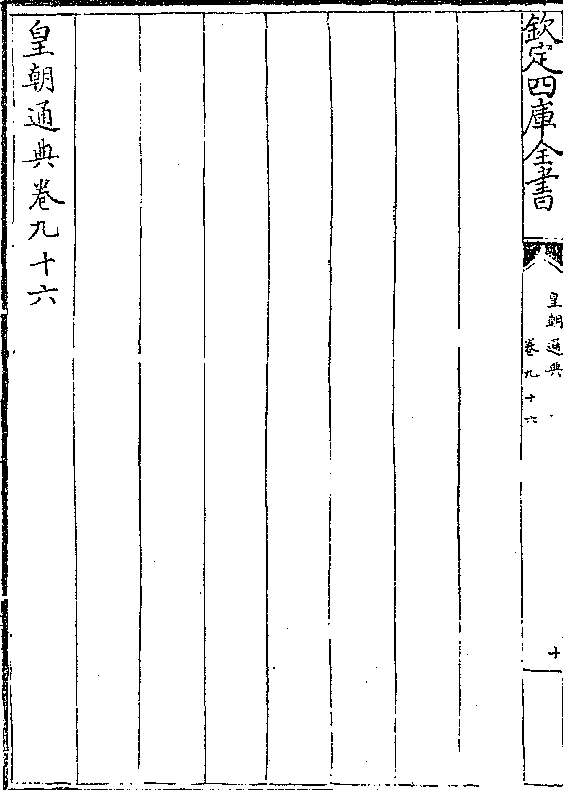 欽定四庫全書
皇朝通典
卷九十六
十
皇朝通典卷九十六